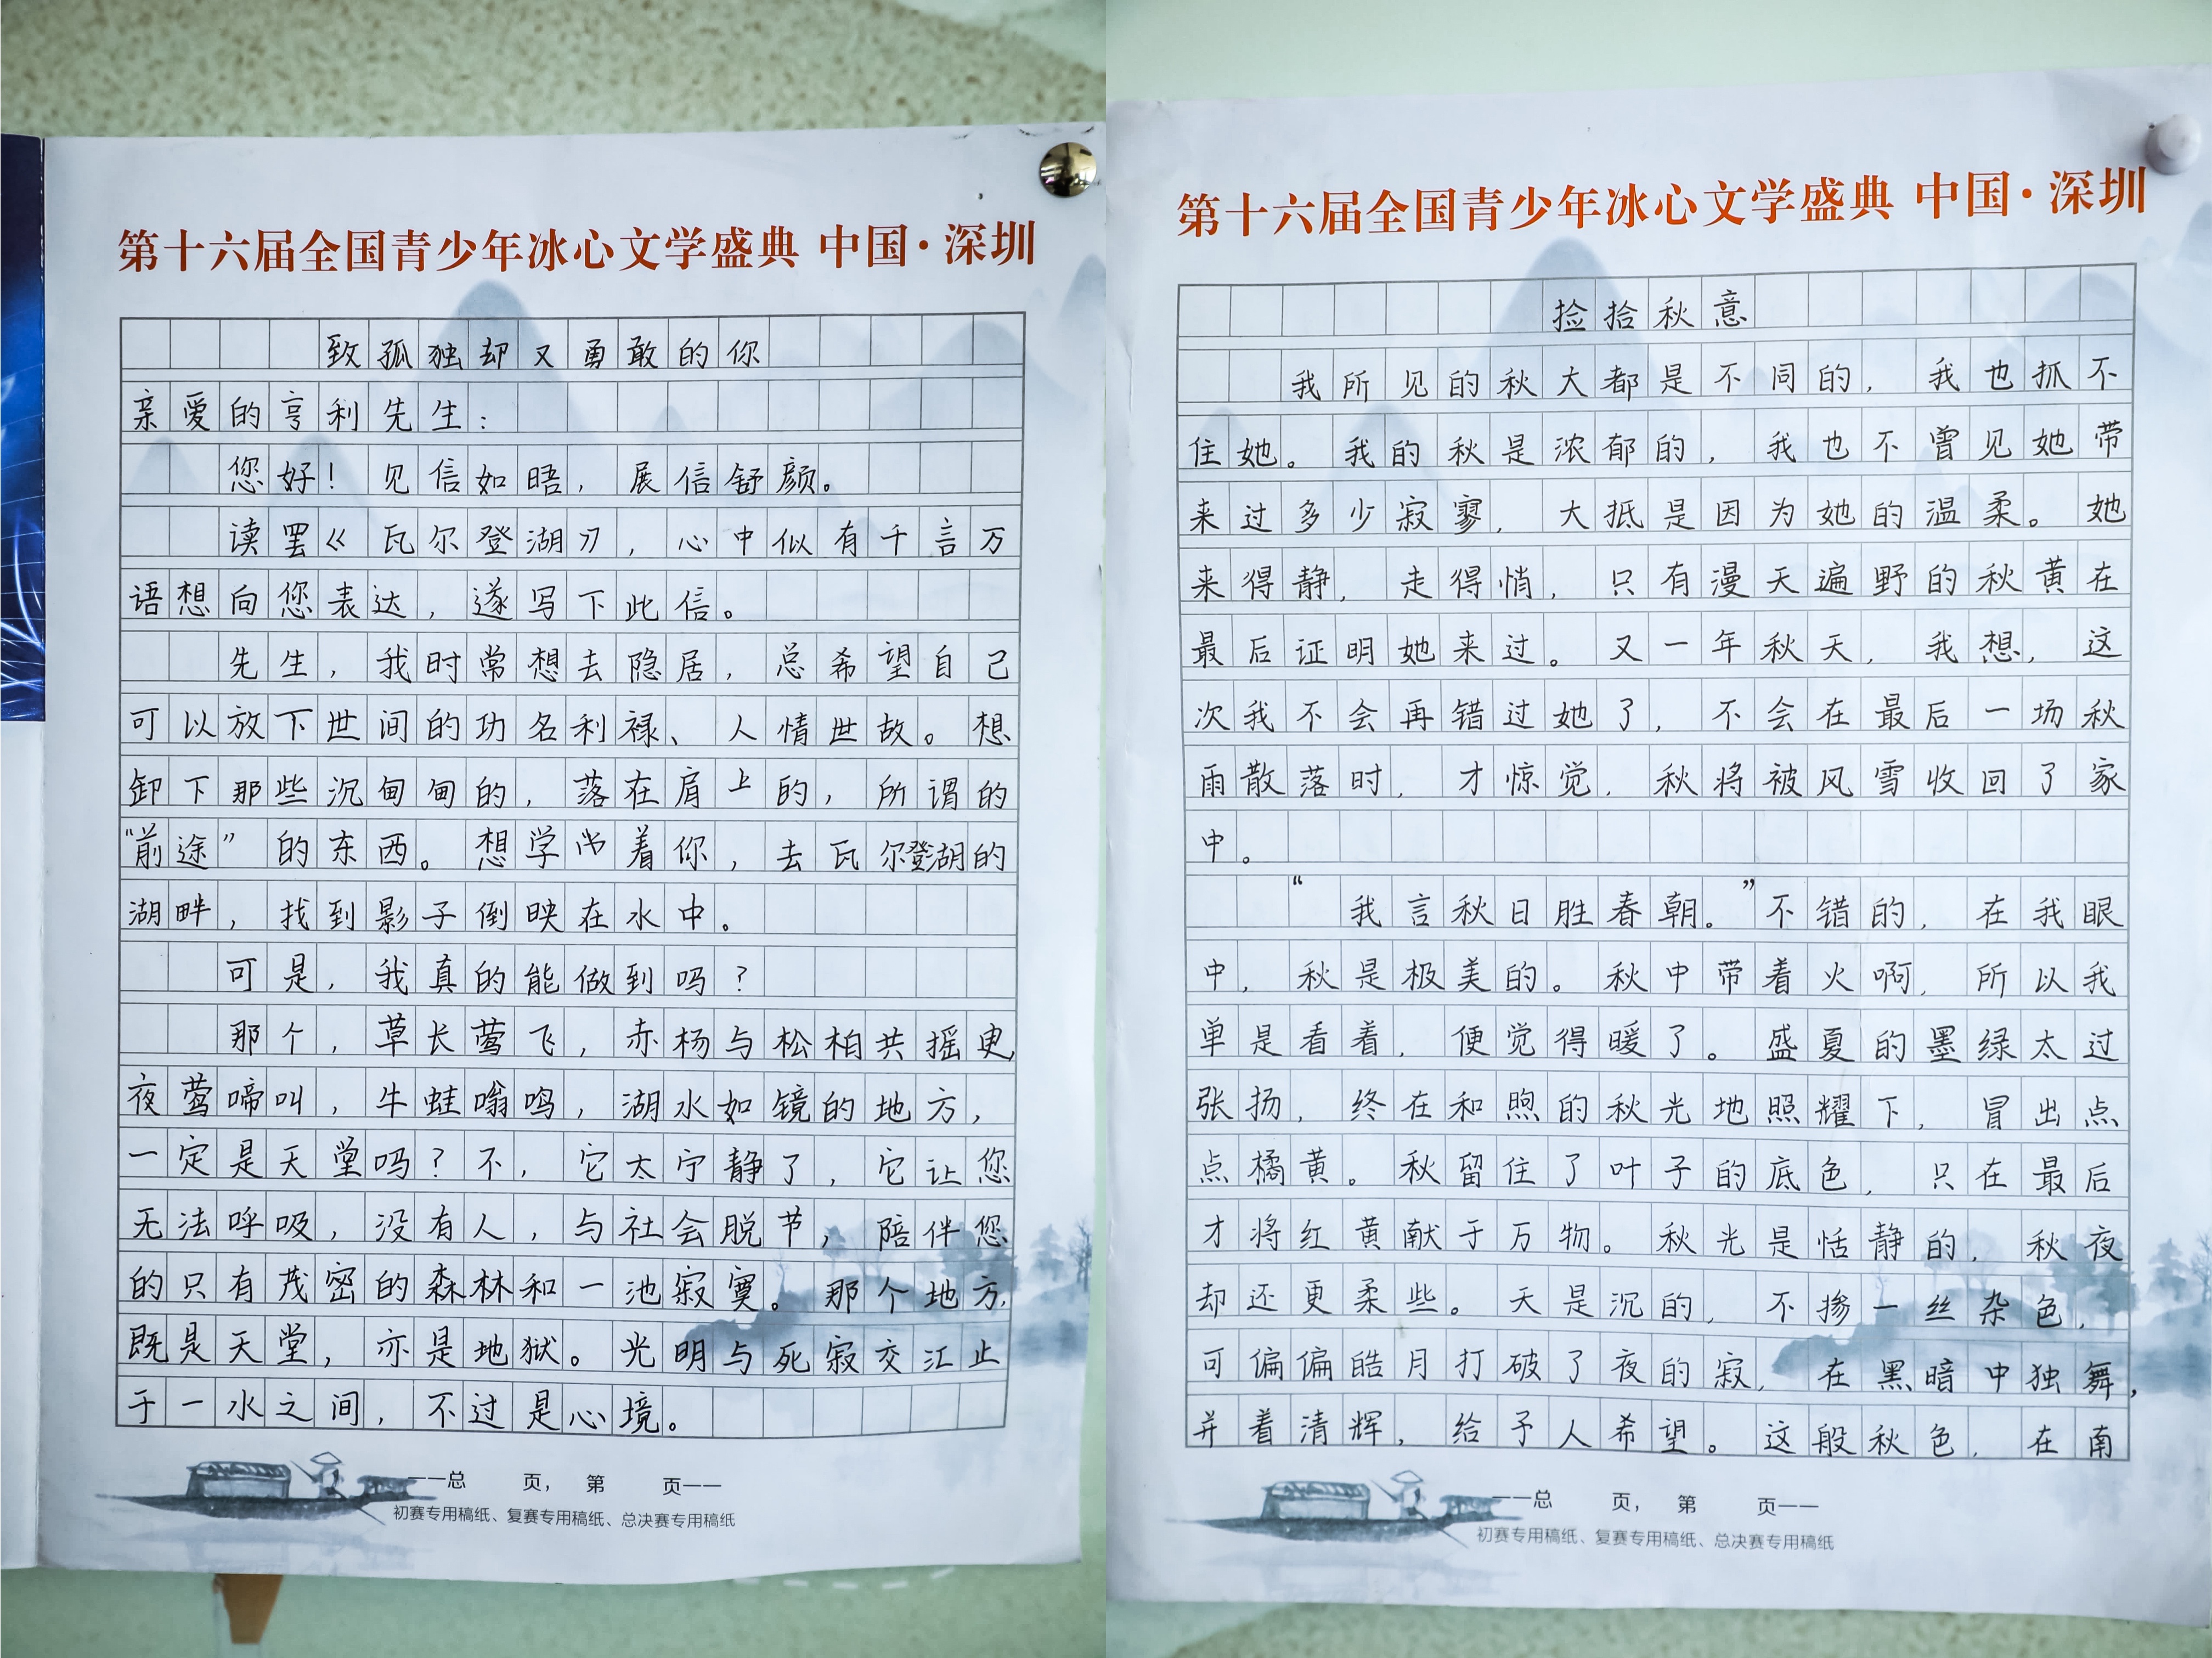 第十六届全国青少年冰心文学盛典 中国·深圳
致孤独却又勇敢的你
亲爱的亨利先生：
您好！见信如晤，展信舒颜。
读罢《瓦尔登湖》，心中似有千言万
语想向您表达，遂写下此信。
先生，我时常想去隐居，总希望自己
可以放下世间的功名利禄、人情世故。想
卸下那些沉甸甸的，落在肩上的，所谓的
“前途”的东西。想学尚着你，去瓦尔登湖的
湖畔，找到影子倒映在水中。
可是，我真的能做到吗？
那个，草长莺飞，赤杨与松柏共摇曳，
夜莺啼叫，牛蛙嗡鸣，湖水如镜的地方，
一定是天堂吗？不，它太宁静了，它让您
无法呼吸，没有人，与社会脱节，陪伴您
的只有茂密的森林和一池寂寞。那个地方，
既是天堂，亦是地狱。光明与死寂交汇止
于一水之间，不过是心境。
——总 页，第 页——
初赛专用稿纸、复赛专用稿纸、总决赛专用稿纸
第十六届全国青少年冰心文学盛典 中国·深圳
捡拾秋意
我所见的秋大都是不同的，我也抓不
住她。我的秋是浓郁的，我也不曾见她带
来过多少寂寥，大抵是因为她的温柔。她
来得静，走得悄，只有漫天遍野的秋黄在
最后证明她来过。又一年秋天，我想，这
次我不会再错过她了，不会在最后一场秋
雨散落时，才惊觉，秋将被风雪收回了家
中。
“我言秋日胜春朝。”不错的，在我眼
中，秋是极美的。秋中带着火啊，所以我
单是看着，便觉得暖了。盛夏的墨绿太过
张扬，终在和煦的秋光地照耀下，冒出点
点橘黄。秋留住了叶子的底色，只在最后
才将红黄献于万物。秋光是恬静的，秋夜
却还更柔些。天是沉的，不掺一丝杂色，
可偏偏皓月打破了夜的寂，在黑暗中独舞，
并着清辉，给予人希望。这般秋色，在南
——总 页，第 页——
初赛专用稿纸、复赛专用稿纸、总决赛专用稿纸